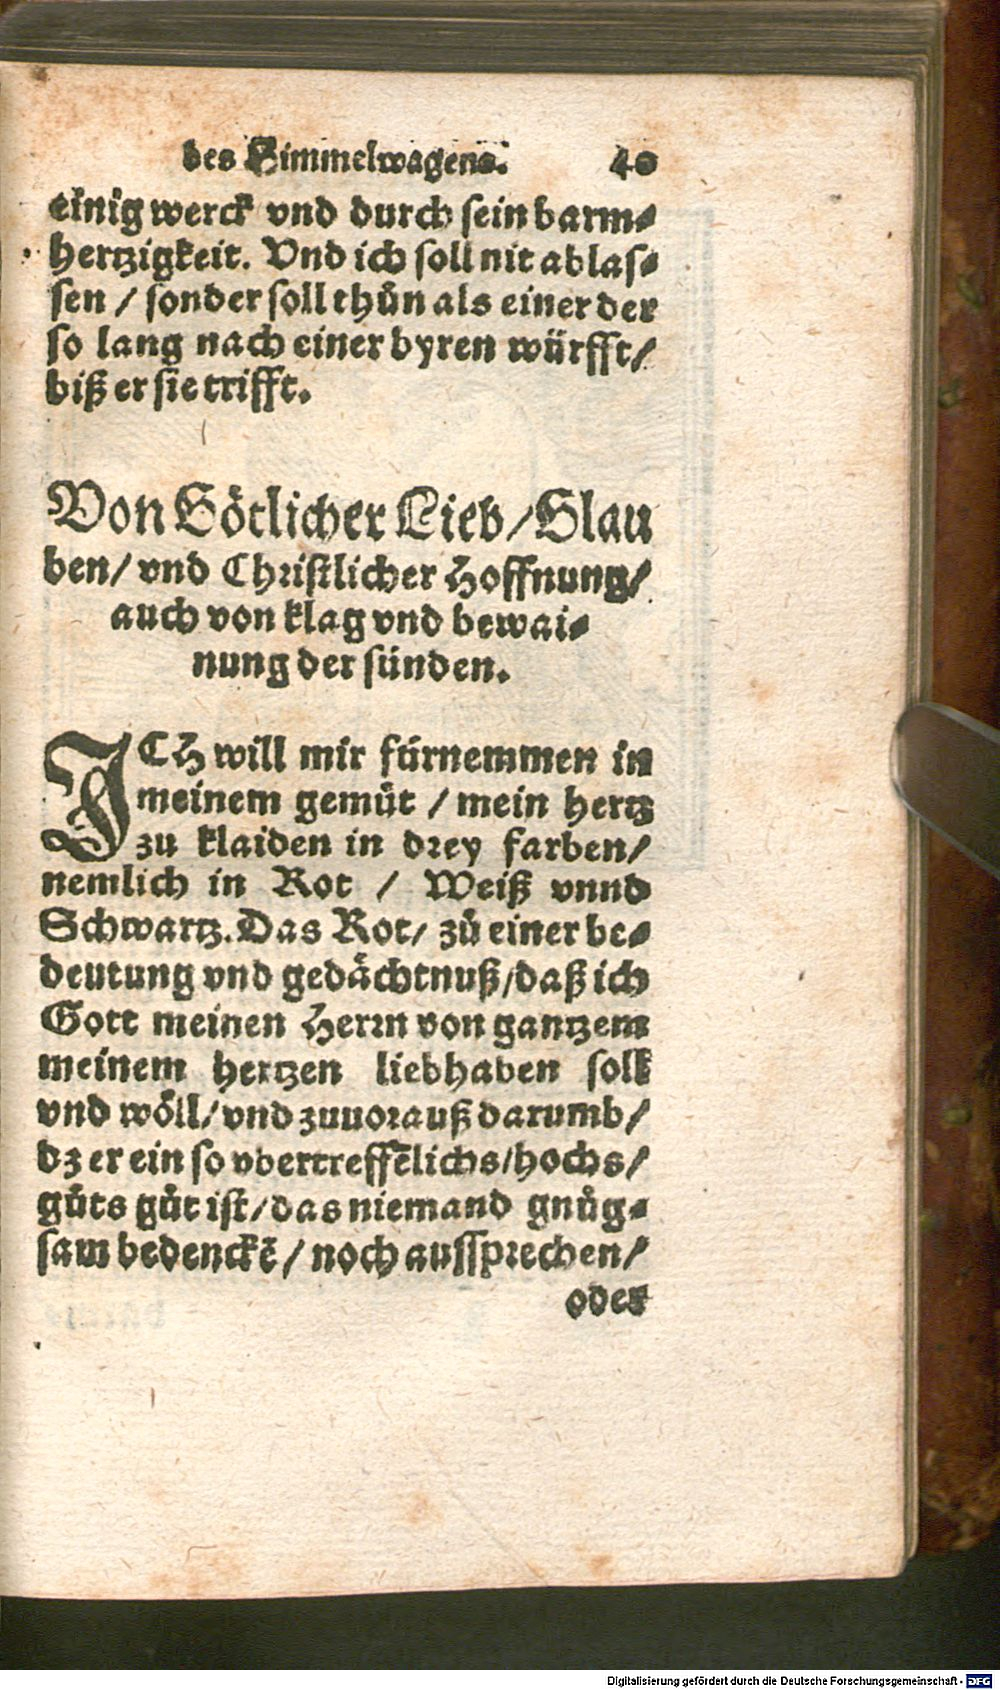 des Himmelwagens. 40
einig werck vnd durch sein barm⸗
hertzigkeit. Vnd ich soll nit ablas⸗
sen / sonder soll thůn als einer der
so lang nach einer byren würfft/
biß er sie trifft.
Von Götlicher Lieb/Glau
ben/ vnd Christlicher Hoffnung/
auch von klag vnd bewai⸗
nung der sünden.
ICH will mir fürnemmen in
meinem gemüt / mein hertz
zu klaiden in drey farben/
nemlich in Rot / Weiß vnnd
Schwartz. Das Rot/ zů einer be⸗
deutung vnd gedächtnuß/daß ich
Gott meinen Herrn von gantzem
meinem hertzen liebhaben soll
vnd wöll/ vnd zuuorauß darumb/
dz er ein so vbertreffẽlichs/hochs/
gůts gůt ist/das niemand gnůg⸗
sam bedenckẽ / noch aussprechen/
oder
Digitalisierung gefördert durch die Deutsche Forschungsgemeinschaft - DFG